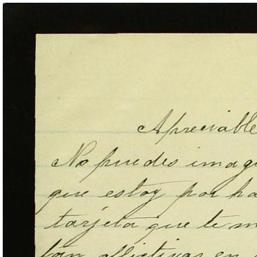 Apreciable
No puedes imagi
que estoy por ha
tarjeta que te m
tan aflictivas en